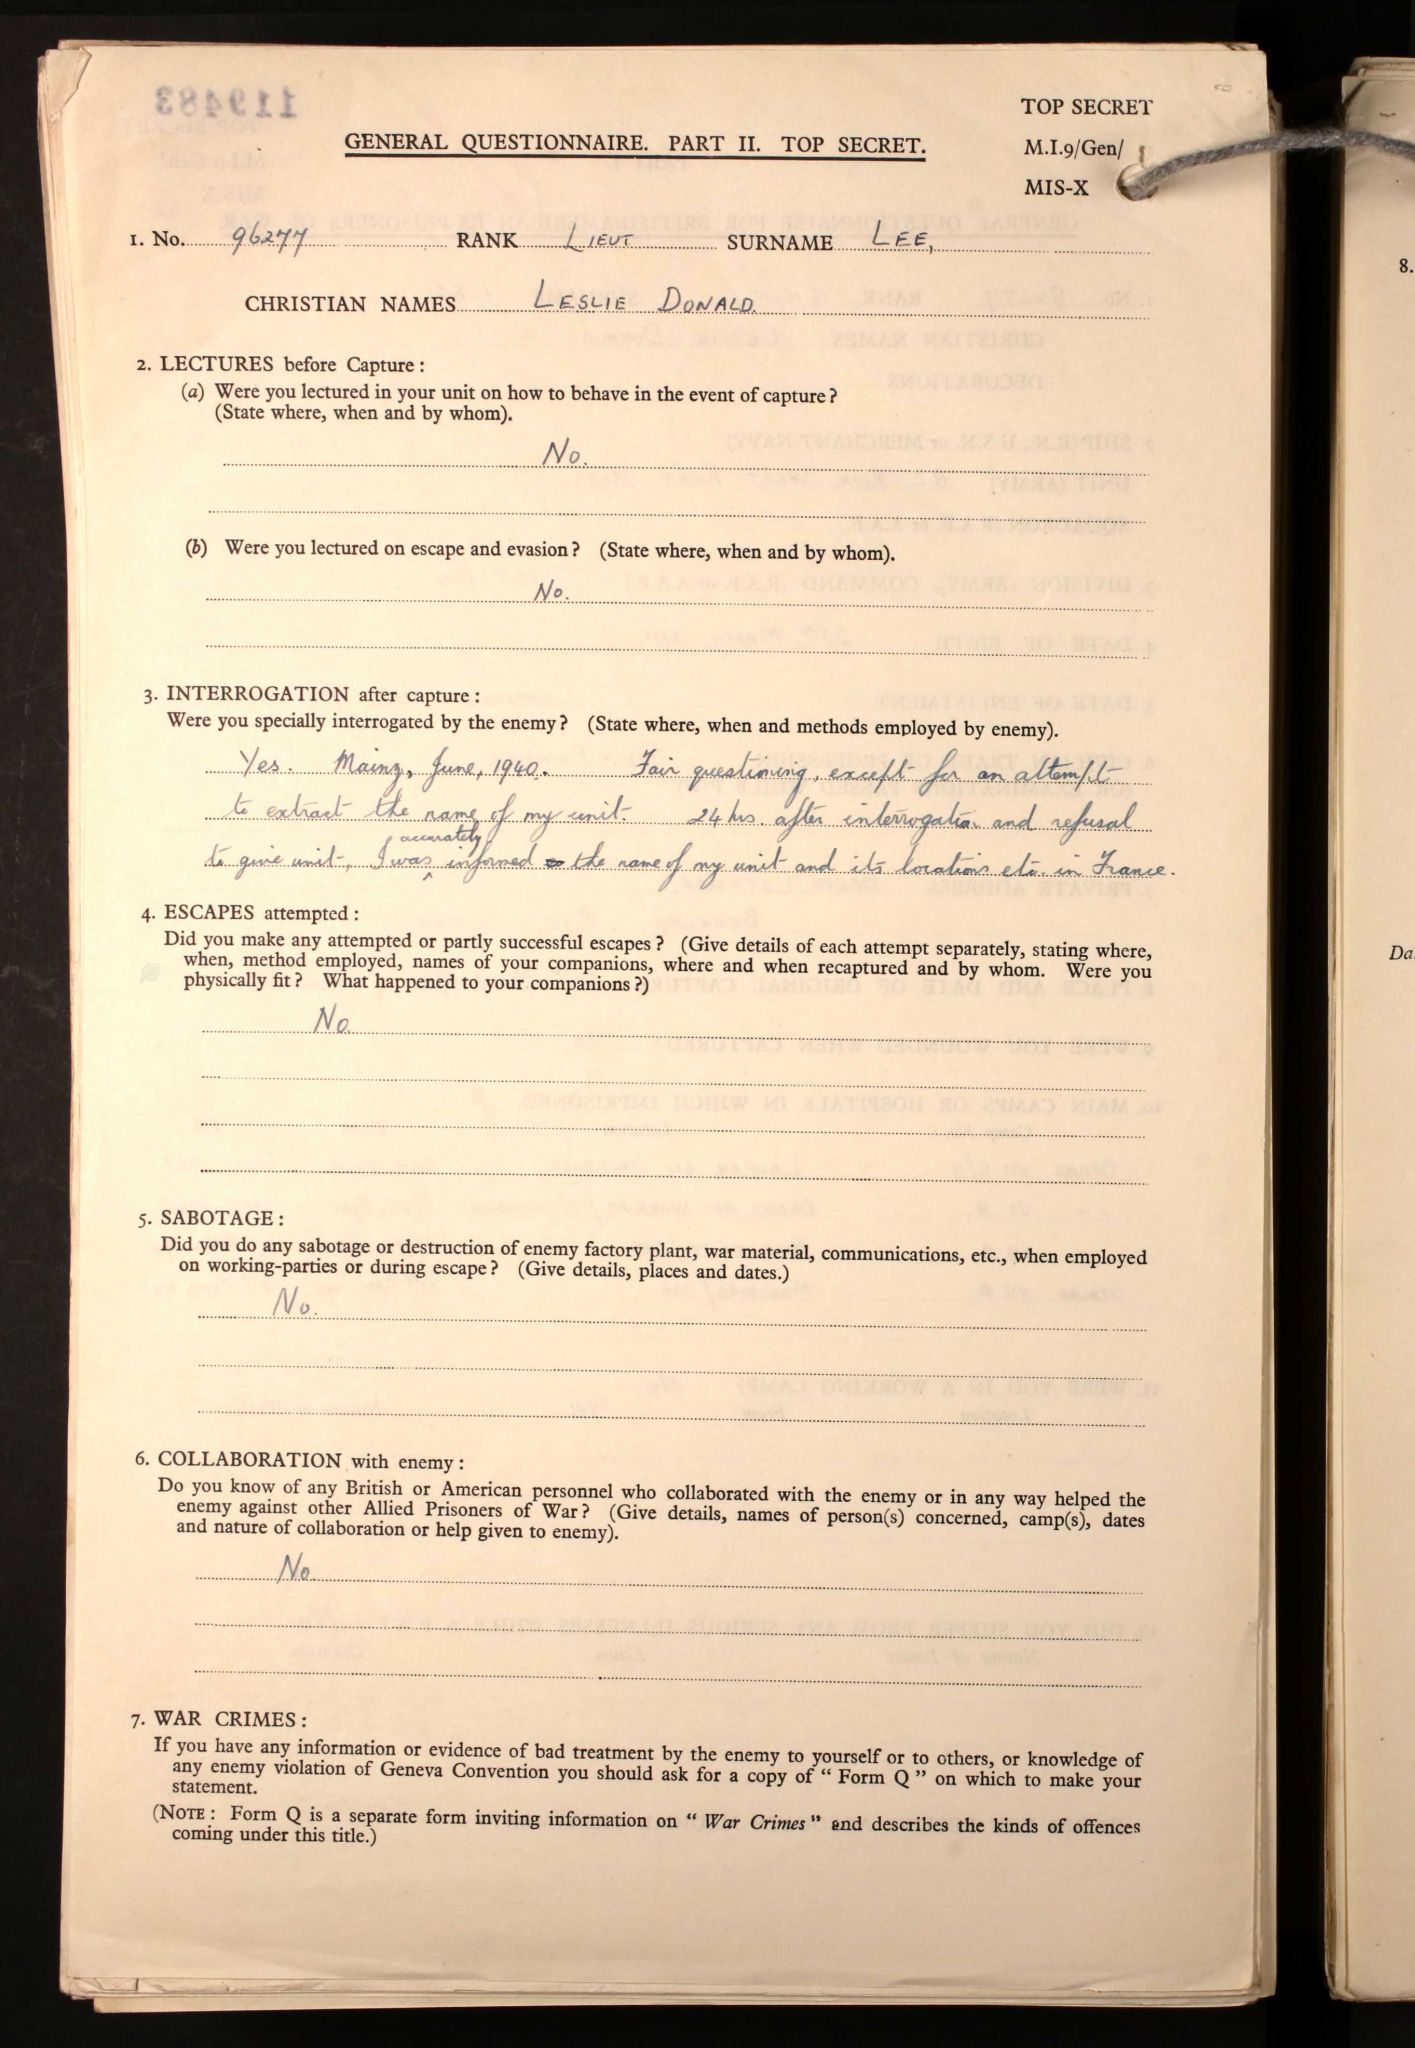 119483
TOP SECRET
GENERAL QUESTIONNAIRE. PART II. TOP SECRET.
M.I.9/Gen/
MIS-X
1. No. 96277 RANK LIEUT SURNAME LEE,
CHRISTIAN NAMES LESLIE DONALD.
2. LECTURES before Capture :
(a) Were you lectured in your unit on how to behave in the event of capture?
(State where, when and by whom).
No.
(b) Were you lectured on escape and evasion? (State where, when and by whom).
No.
3. INTERROGATION after capture :
Were you specially interrogated by the enemy? (State where, when and methods employed by enemy).
Yes. Mainz, June, 1940. Fair questioning, except for an attempt
to extract the name of my unit. 24 hrs. after interrogation and refusal
to give unit, I was accurately informed the name of my unit and its locations etc. in France.
4. ESCAPES attempted :
Did you make any attempted or partly successful escapes? (Give details of each attempt separately, stating where,
when, method employed, names of your companions, where and when recaptured and by whom. Were you
physically fit? What happened to your companions?)
No.
5. SABOTAGE :
Did you do any sabotage or destruction of enemy factory plant, war material, communications, etc., when employed
on working-parties or during escape? (Give details, places and dates.)
No.
6. COLLABORATION with enemy :
Do you know of any British or American personnel who collaborated with the enemy or in any way helped the
enemy against other Allied Prisoners of War? (Give details, names of person(s) concerned, camp(s), dates
and nature of collaboration or help given to enemy).
No.
7. WAR CRIMES :
If you have any information or evidence of bad treatment by the enemy to yourself or to others, or knowledge of
any enemy violation of Geneva Convention you should ask for a copy of “ Form Q ” on which to make your
statement.
(NOTE : Form Q is a separate form inviting information on “ War Crimes ” and describes the kinds of offences
coming under this title.)
8.
Da